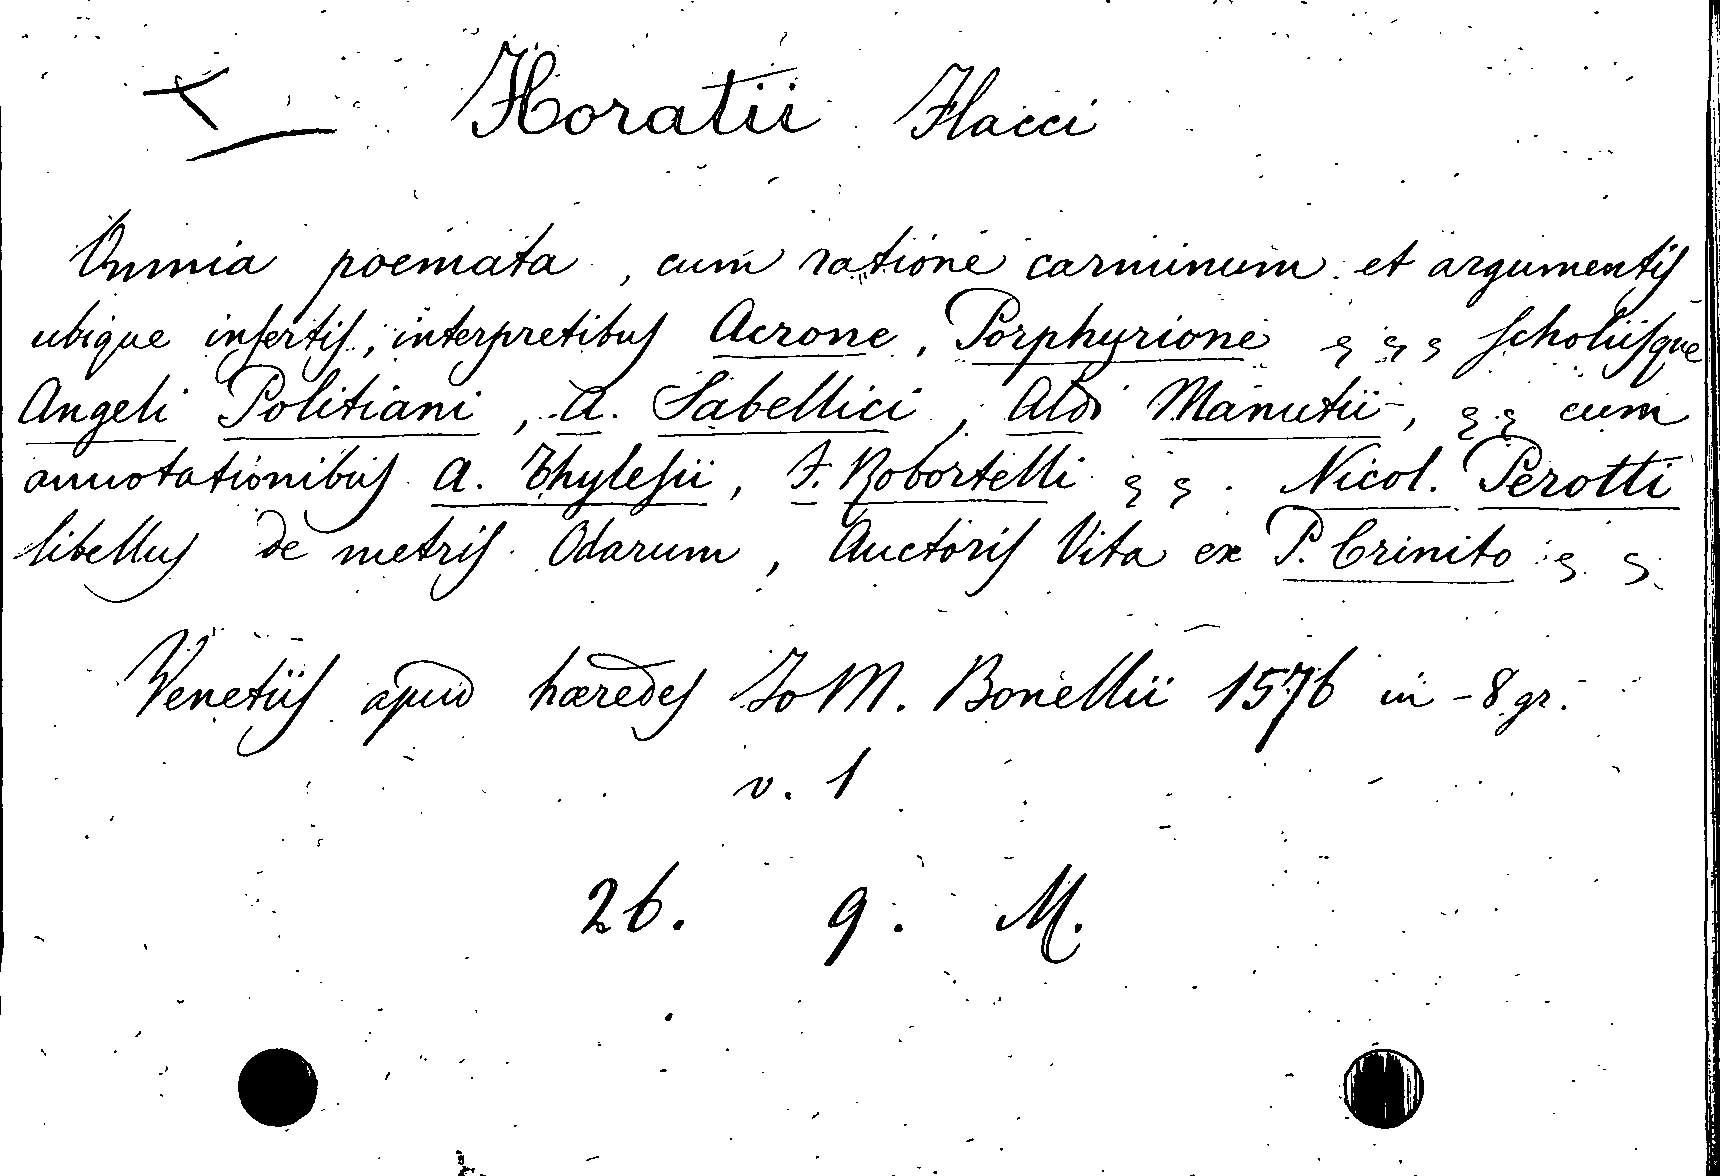 Horatii Flacci
Omnia poemata, cum ratione carminum et argumentis
ubique insertis, interpretibus Acrone, Porphyrione, scholiisque
Angeli Politiani, A. Sabellici, Aldi Manutii, cum
annotationibus A. Thylesii, F. Robortelli. Nicol. Perotti
libellus de metris Odarum, Auctoris Vita ex P. Crinito
Venetiis apud hæredes Jo M. Bonellii 1576 in-8 gr.
v. 1
26. 9. M.